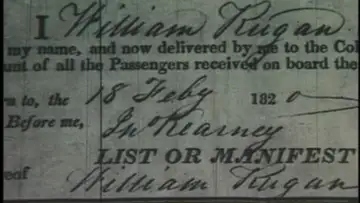 I William Rugan
my name, and now delivered by me to the Col
unt of all the Passengers received on board the
rn to, the 18 Feby 1820
Before me, Jn Kearney
LIST OR MANIFEST
eof William Rugan